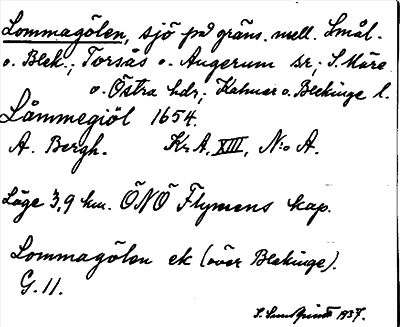 Lommagölen, sjö på gräns. mell. Smål.
o. Blek.; Torsås o. Augerum sr; S. Möre
o. Östra hdr; Kalmar o. Blekinge l.
Låmmegiöl 1654.
A. Bergh. Kr. A. XIII, N:o A.
Läge 3,9 km. ÖNÖ Flymens kap.
Lommagölen ek (över Blekinge).
G. 11.
S. Sundquist 1937.